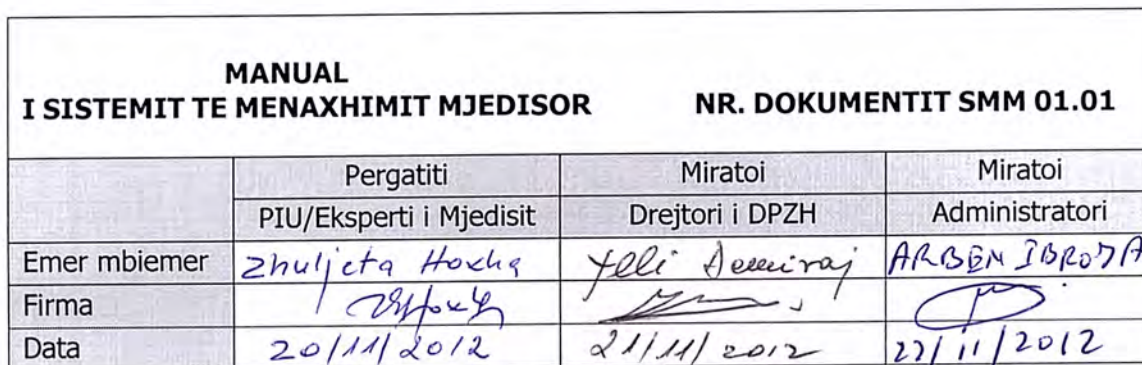 MANUAL
I SISTEMIT TE MENAXHIMIT MJEDISOR NR. DOKUMENTIT SMM 01.01
Pergatiti Miratoi Miratoi
PIU/Eksperti i Mjedisit Drejtori i DPZH Administratori
Emer mbiemer Zhuljeta Hoxha Ylli Demiraj ARBEN
Firma
Data 20/11/2012 21/11/2012 22/11/2012